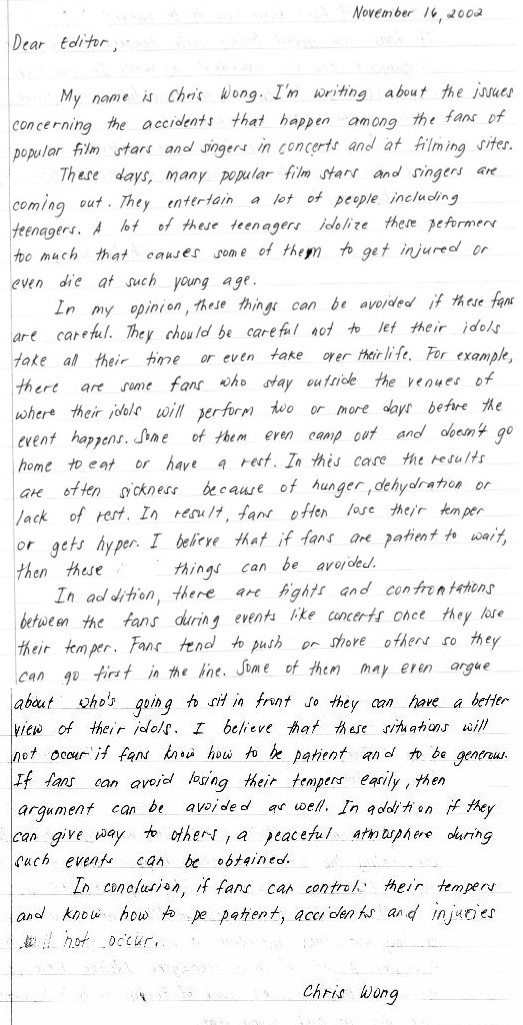 November 16, 2002
Dear Editor,
My name is Chris Wong. I'm writing about the issues
concerning the accidents that happen among the fans of
popular film stars and singers in concerts and at filming sites.
These days, many popular film stars and singers are
coming out. They entertain a lot of people including
teenagers. A lot of these teenagers idolize these peformers
too much that causes some of them to get injured or
even die at such young age.
In my opinion, these things can be avoided if these fans
are careful. They should be careful not to let their idols
take all their time or even take over their life. For example,
there are some fans who stay outside the venues of
where their idols will perform two or more days before the
event happens. Some of them even camp out and doesn't go
home to eat or have a rest. In this case the results
are often sickness because of hunger, dehydration or
lack of rest. In result, fans often lose their temper
or gets hyper. I believe that if fans are patient to wait,
then these things can be avoided.
In addition, there are fights and confrontations
between the fans during events like concerts once they lose
their temper. Fans tend to push or shove others so they
can go first in the line. Some of them may even argue
about who's going to sit in front so they can have a better
view of their idols. I believe that these situations will
not occur if fans know how to be patient and to be generous.
If fans can avoid losing their tempers easily, then
argument can be avoided as well. In addition if they
can give way to others, a peaceful atmosphere during
such events can be obtained.
In conclusion, if fans can control their tempers
and know how to pe patient, accidents and injuries
will not occur.
Chris Wong